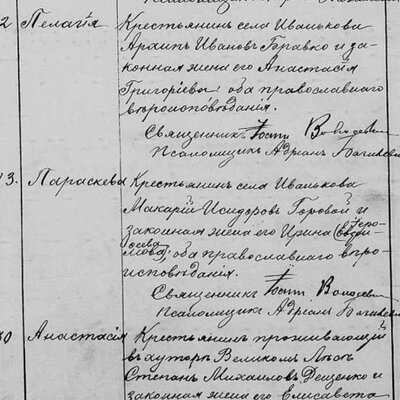 2 Пелагія Крестьянин села Иванькова
Архип Иванов Горавко и за-
конная жена его Анастасія
Григорієвы оба православнаго
вѣроисповѣданія.
Священникъ
Псаломщикъ Адріанъ
13. Параскева Крестьянинъ села Иванькова
Макарій Исидоровъ Горовой и
законная жена его Ирина
оба православнаго вѣро-
исповѣданія.
Священникъ
Псаломщикъ Адріанъ
30 Анастасія Крестьянинъ проживающій
въ хуторѣ Великомъ
Степанъ Михаиловъ Дещенко и
законная жена его Елисавета